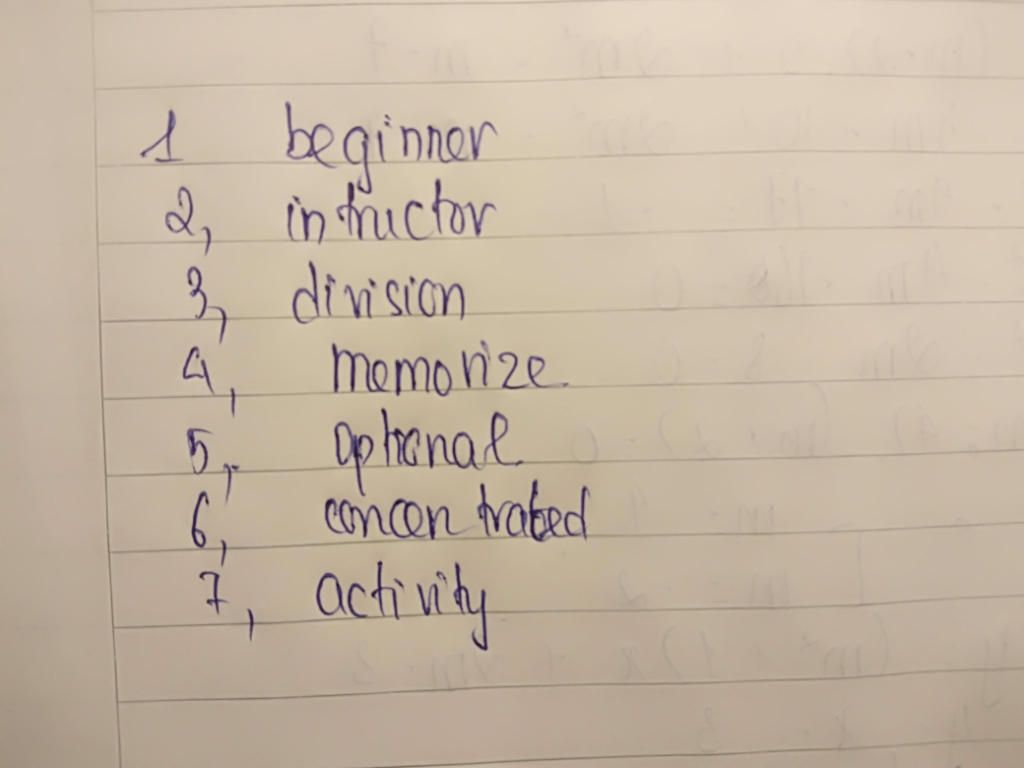 1 beginner
2, intructor
3, division
4, memorize
5, optional
6, concentrated
7, activity